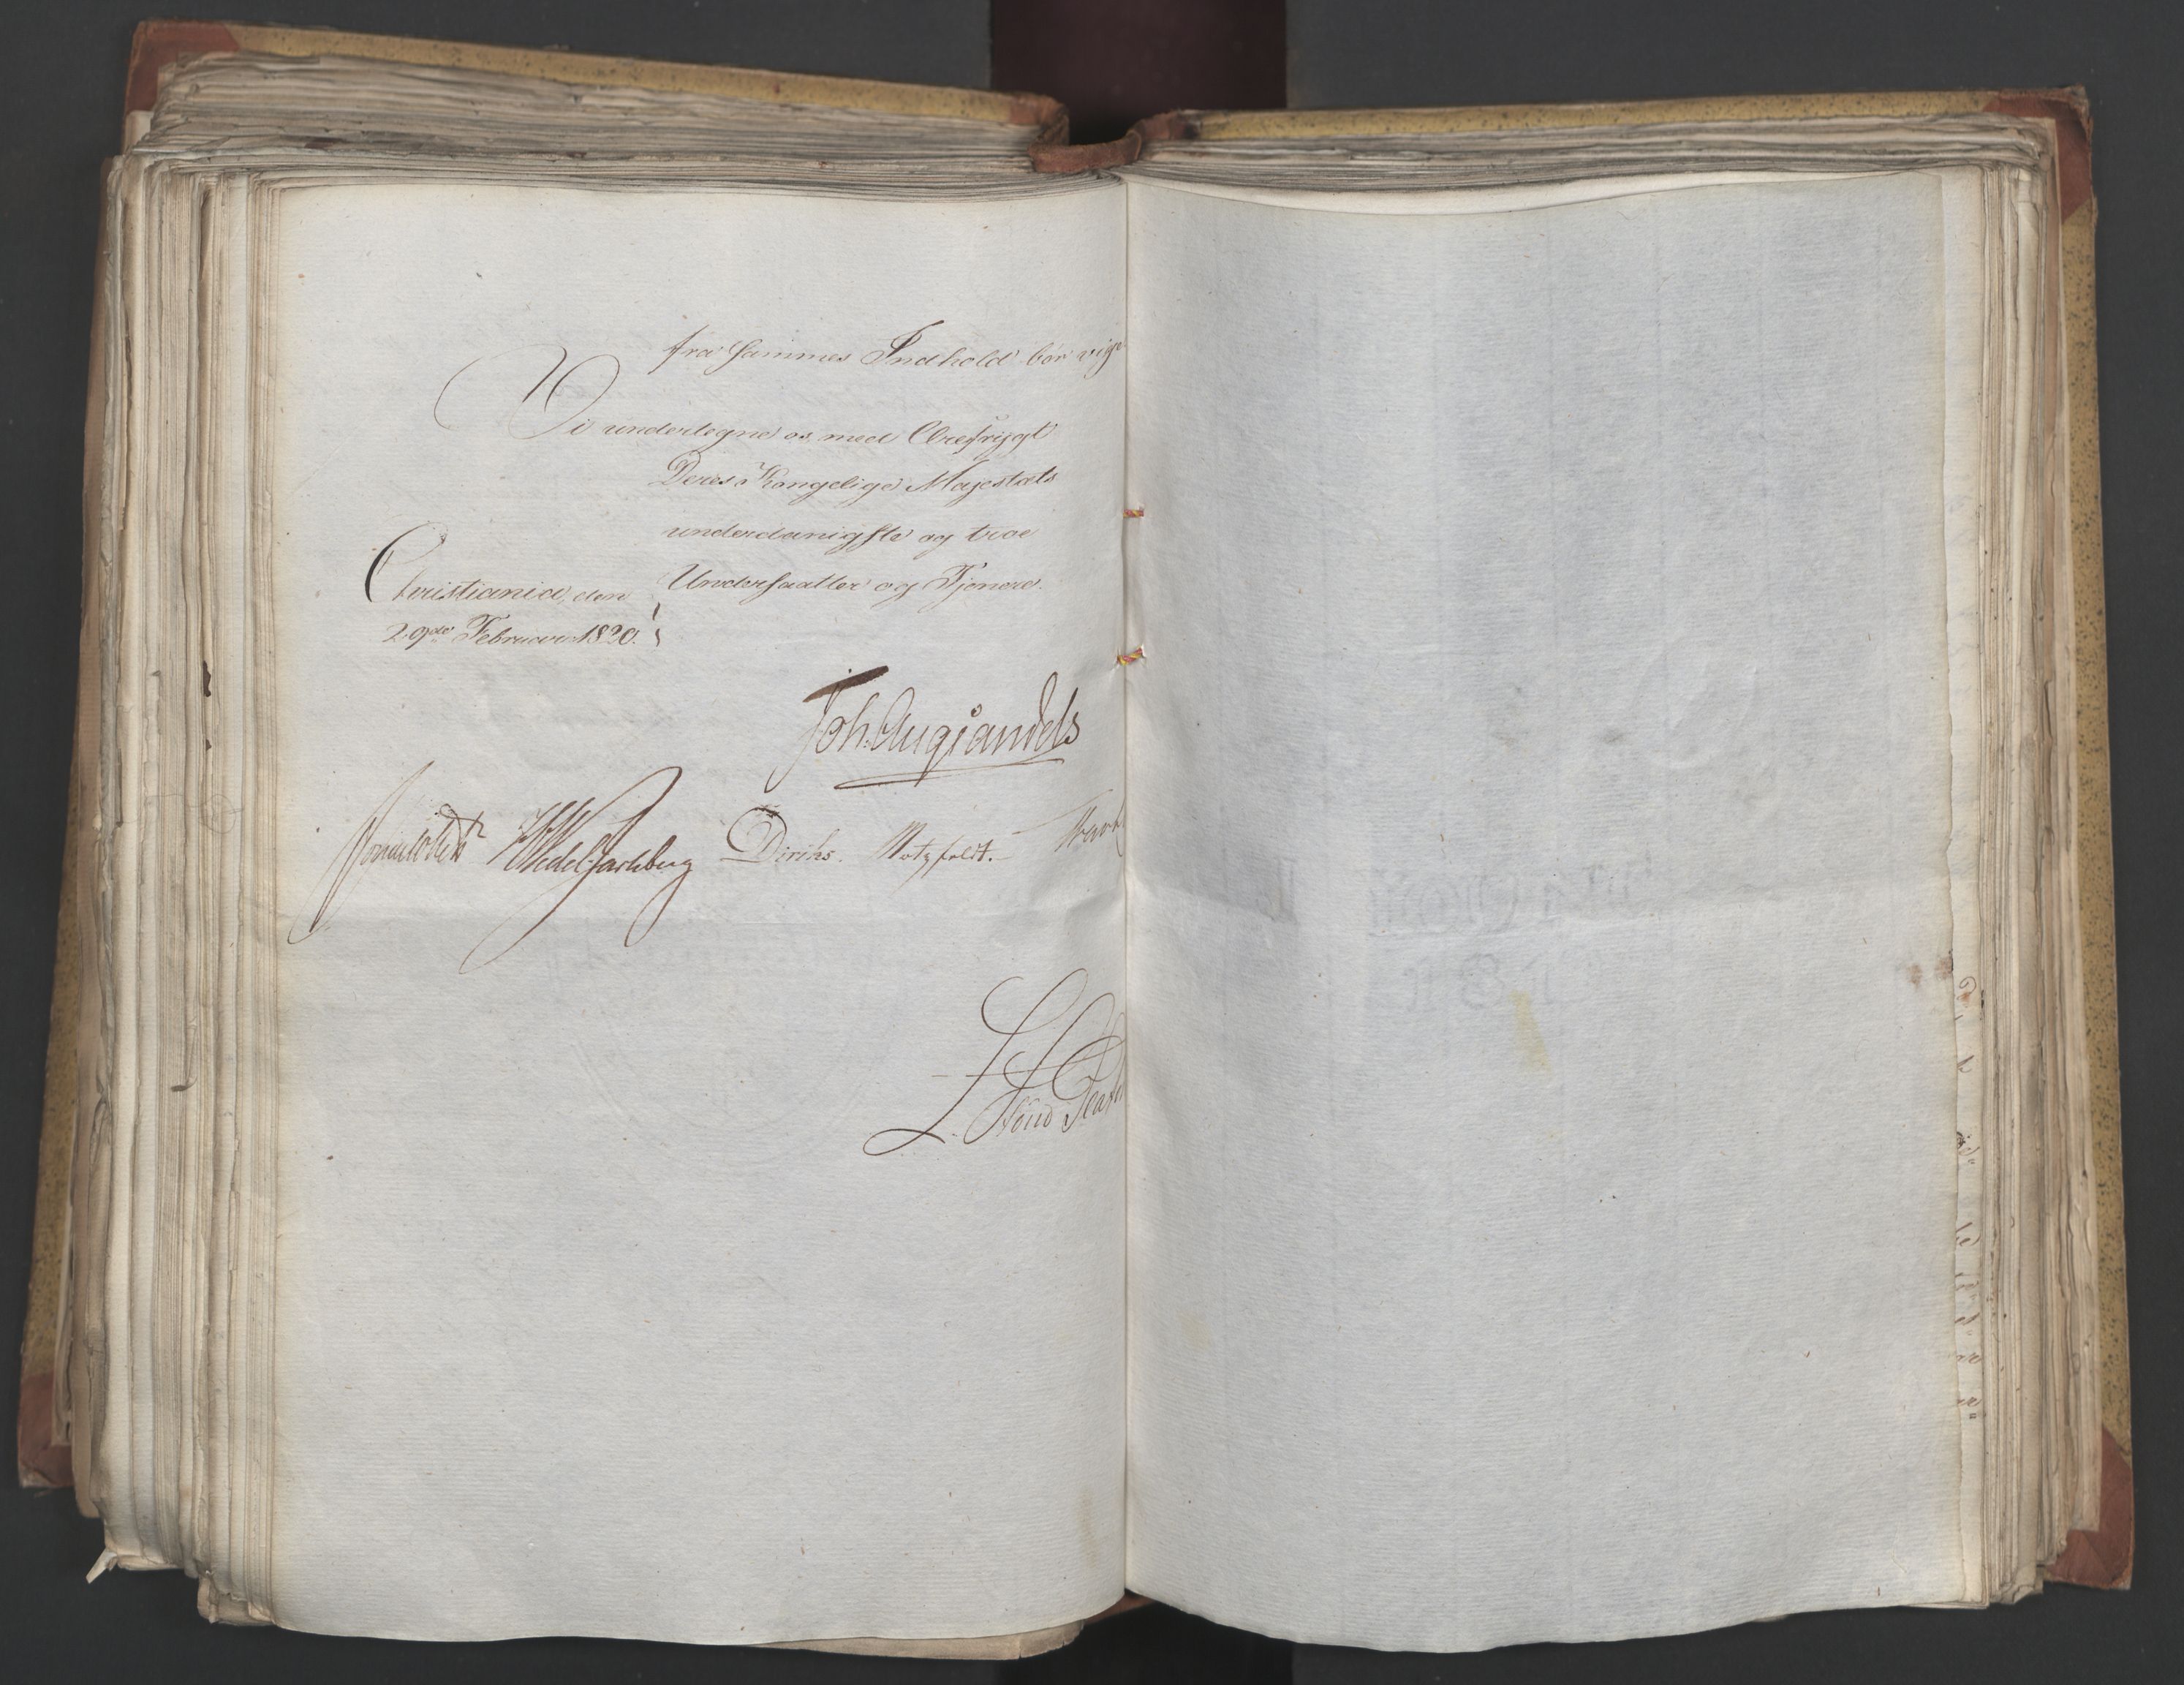 fra sammes Indhold bör vige
Vi undertegne os med Ærefrygt
Deres Kongelige Majestæts
underdanigste og troe
Undersaatter og Tjenere.
Christiania, den
29de Februar 1820.
Joh: Aug: Sandels
Sommerhielm HWedel Jarlsberg Diriks. Motzfeldt.
L.